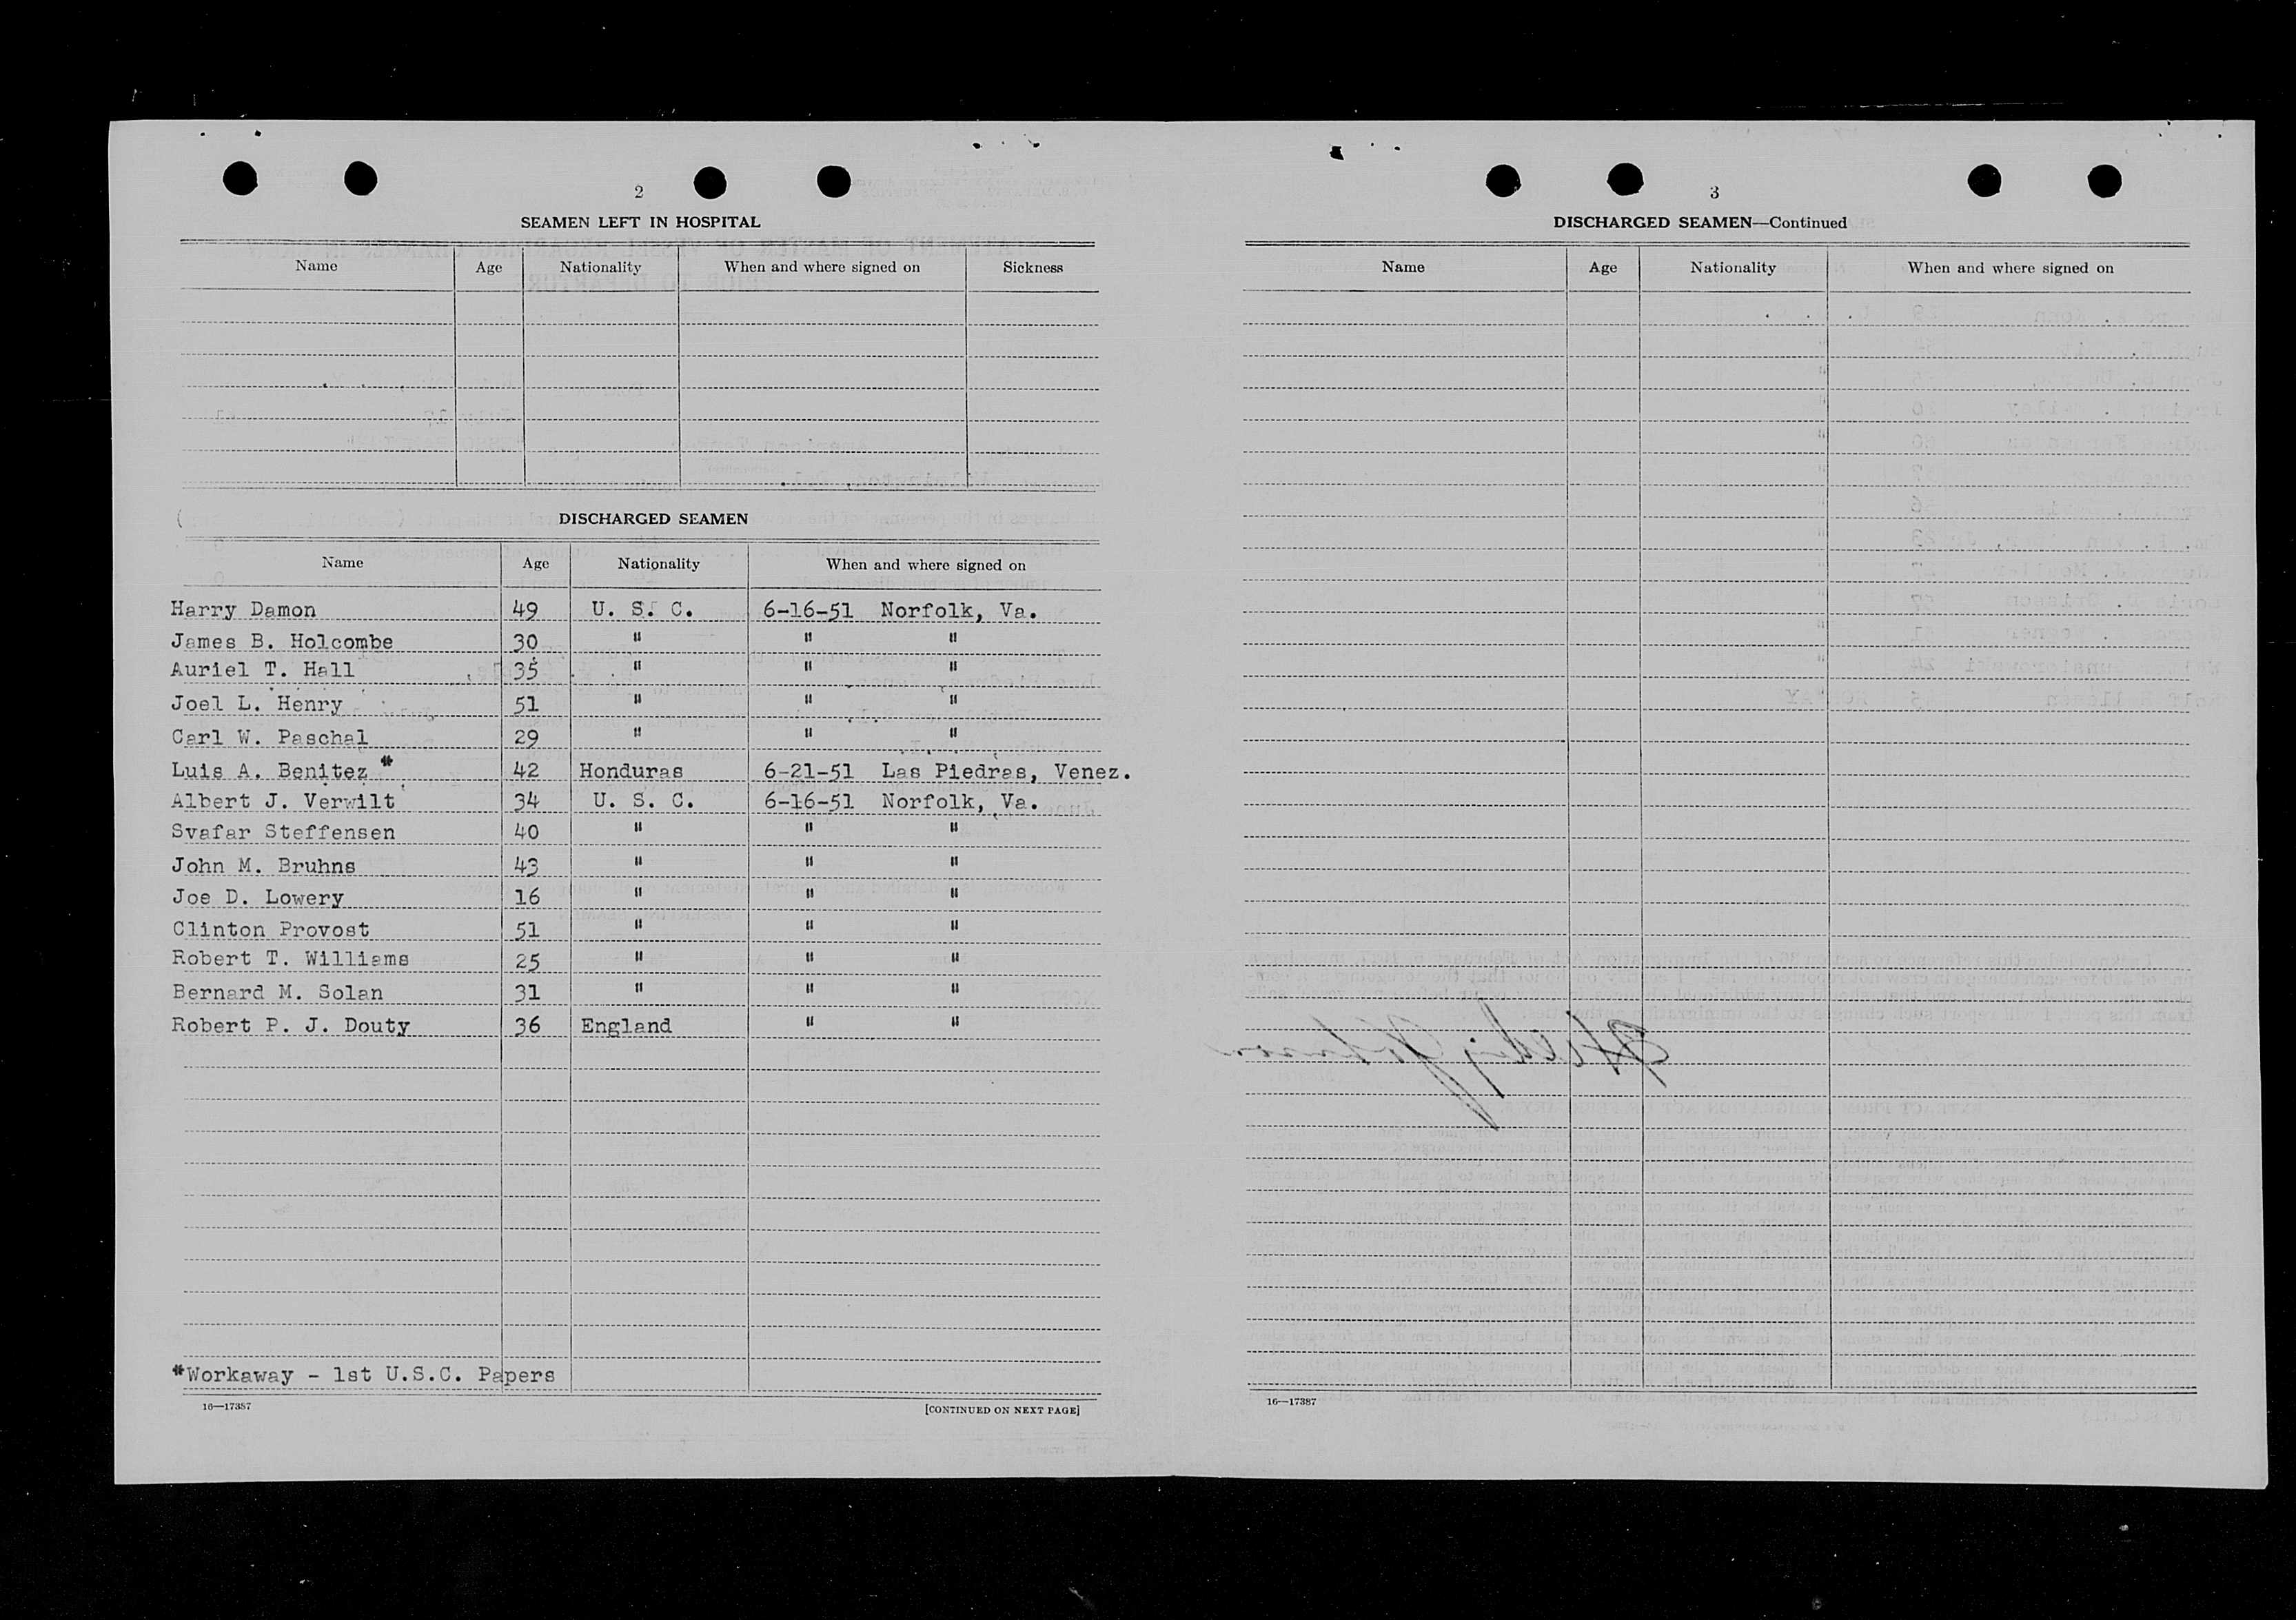 2
SEAMEN LEFT IN HOSPITAL
Name Age Nationality When and where signed on Sickness
DISCHARGED SEAMEN
Name Age Nationality When and where signed on
Harry Damon 49 U. S. C. 6-16-51 Norfolk, Va.
James B. Holcombe 30 " " "
Auriel T. Hall 35 " " "
Joel L. Henry 51 " " "
Carl W. Paschal 29 " " "
Luis A. Benitez * 42 Honduras 6-21-51 Las Piedras, Venez.
Albert J. Verwilt 34 U. S. C. 6-16-51 Norfolk, Va.
Svafar Steffensen 40 " " "
John M. Bruhns 43 " " "
Joe D. Lowery 16 " " "
Clinton Provost 51 " " "
Robert T. Williams 25 " " "
Bernard M. Solan 31 " " "
Robert P. J. Douty 36 England " "
*Workaway - 1st U.S.C. Papers
16—17387
[CONTINUED ON NEXT PAGE]
3
DISCHARGED SEAMEN—Continued
Name Age Nationality When and where signed on
16—17387